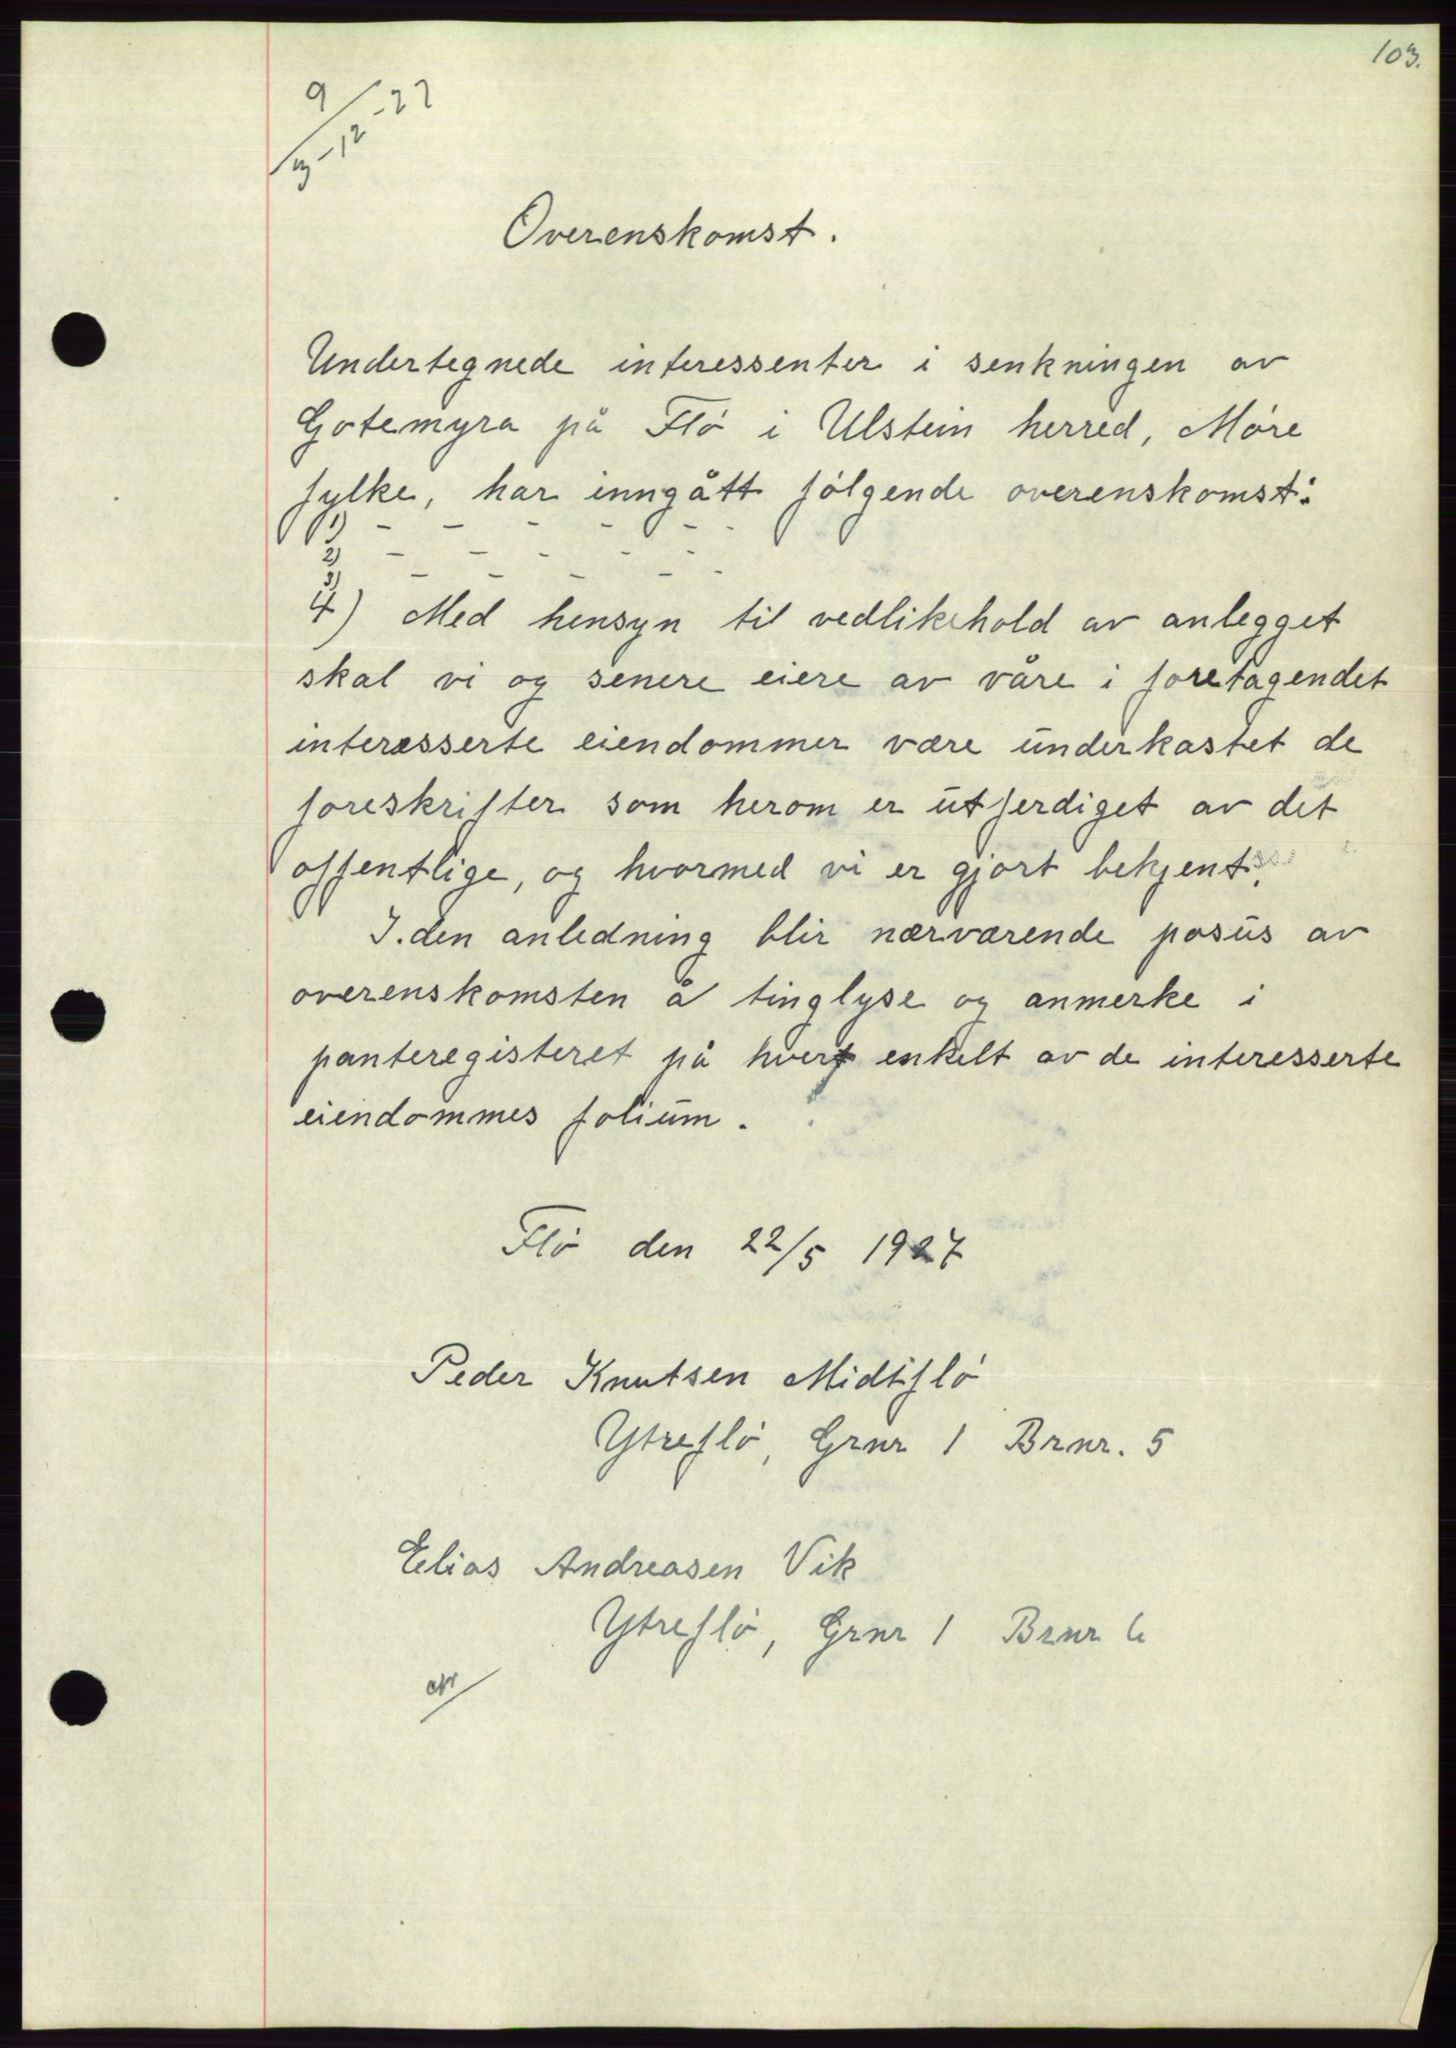 103.
9/3-12-27
Overenskomst.
Undertegnede interessenter i senkningen av
Gotemyra på Flö i Ulstein herred, Möre
fylke, har inngått fölgende overenskomst:
1) - - - - - -
2) - - - - -
3) - - - - -
4) Med hensyn til vedlikehold av anlegget
skal vi og senere eiere av våre i foretagendet
interesserte eiendommer være underkastet de
foreskrifter som herom er utferdiget av det
offentlige, og hvormed vi er gjort bekjent.
I den anledning blir nærværende posus av
overenskomsten å tinglyse og anmerke i
panteregisteret på hvert enkelt av de interesserte
eiendommes folium.
Flö den 22/5 1927
Peder Knutsen Midtflö
Ytreflö, Grnr 1 Brnr. 5
Elias Andreasen Vik
Ytreflö, Grnr 1 Brnr 6